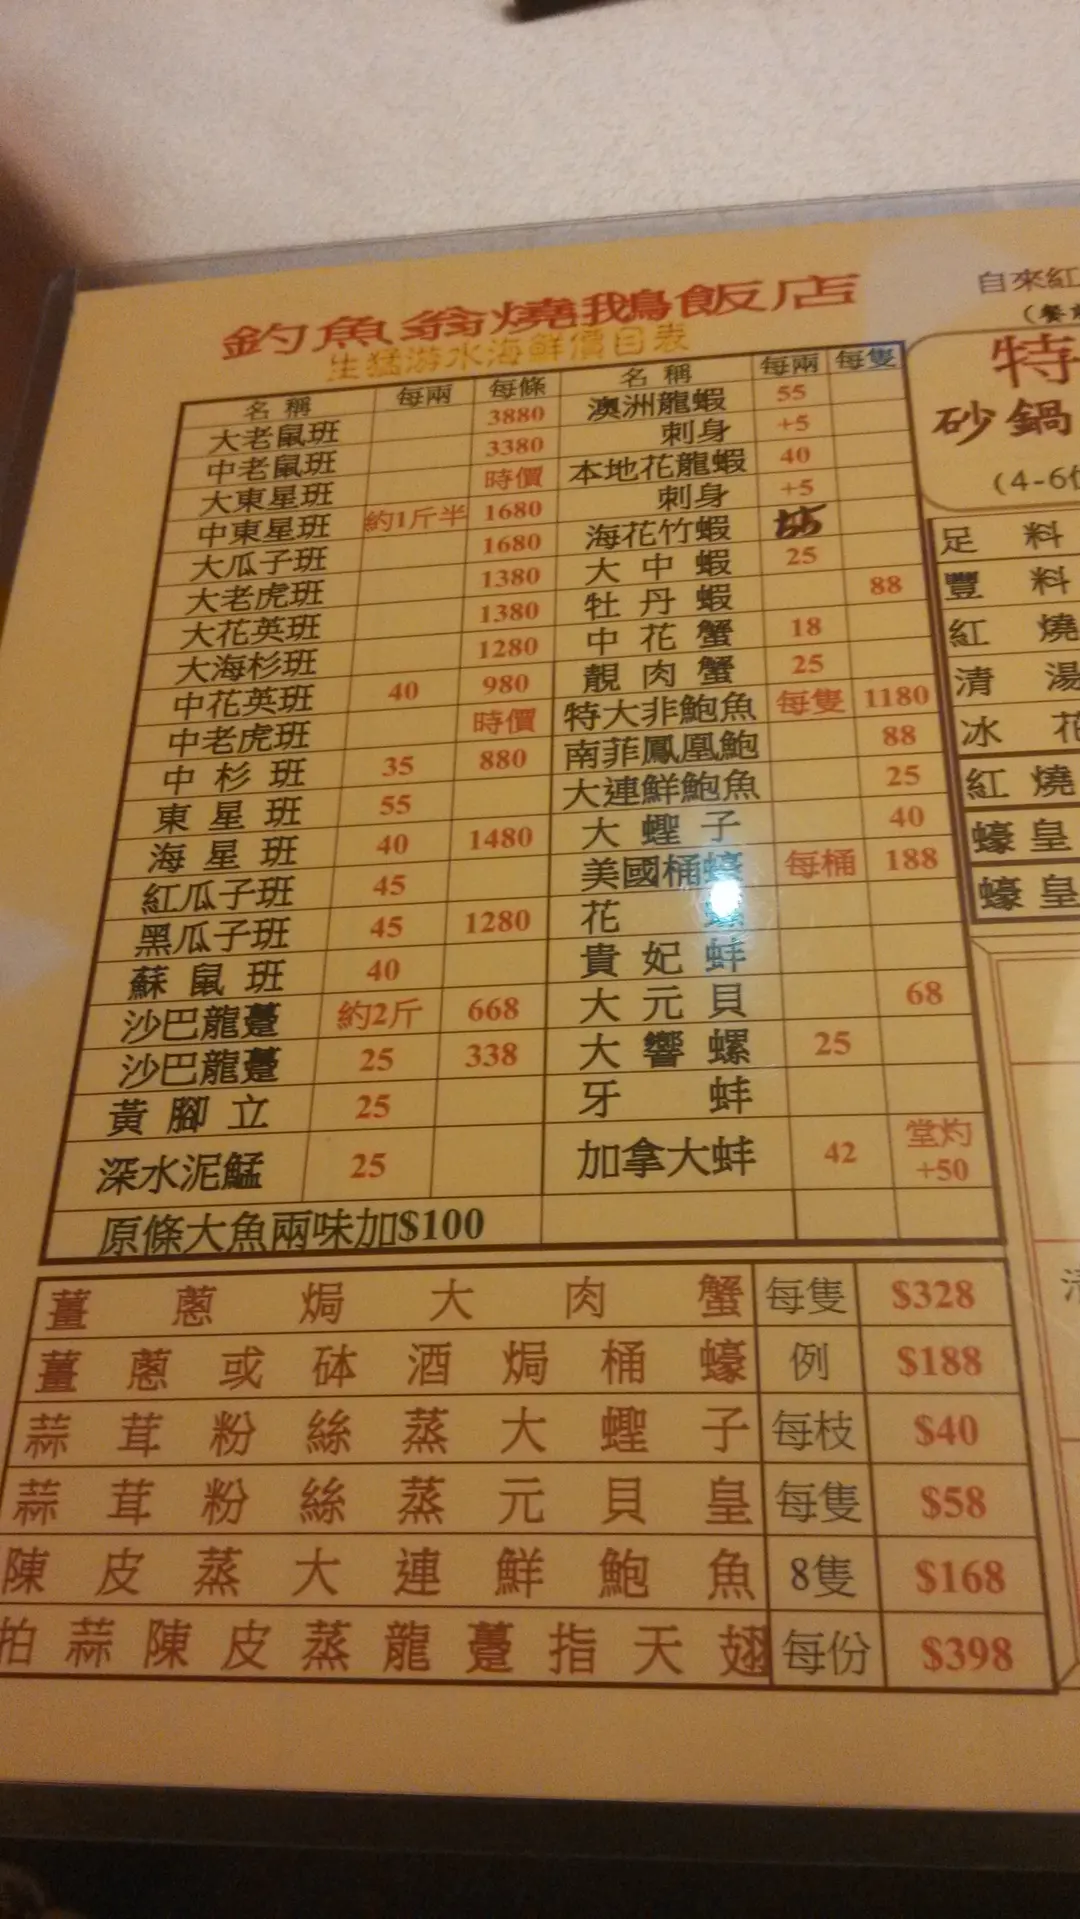 釣魚翁燒鵝飯店
生猛游水海鮮價目表
名稱 每兩 每條 名稱 每兩 每隻
大老鼠班 3880 澳洲龍蝦 55
中老鼠班 3380 刺身 +5
大東星班 時價 本地花龍蝦 40
中東星班 約1斤半 1680 刺身 +5
大瓜子班 1680 海花竹蝦 55
大老虎班 1380 大中蝦 25
大花英班 1380 牡丹蝦 88
大海杉班 1280 中花蟹 18
中花英班 40 980 靚肉蟹 25
中老虎班 時價 特大非鮑魚 每隻 1180
中杉班 35 880 南菲鳳凰鮑 88
東星班 55 大連鮮鮑魚 25
海星班 40 1480 大蟶子 40
紅瓜子班 45 美國桶蠔 每桶 188
黑瓜子班 45 1280 花螺
蘇鼠班 40 貴妃蚌
沙巴龍躉 約2斤 668 大元貝 68
沙巴龍躉 25 338 大響螺 25
黃腳立 25 牙蚌
深水泥鯭 25 加拿大蚌 42 堂灼+50
原條大魚兩味加$100
薑蔥焗大肉蟹 每隻 $328
薑蔥或砵酒焗桶蠔 例 $188
蒜茸粉絲蒸大蟶子 每枝 $40
蒜茸粉絲蒸元貝皇 每隻 $58
陳皮蒸大連鮮鮑魚 8隻 $168
拍蒜陳皮蒸龍躉指天翅 每份 $398
自來紅
特
砂鍋
(4-6位
足料
豐料
紅燒
清湯
冰花
紅燒
蠔皇
蠔皇